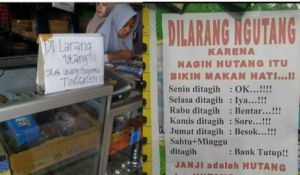 Di Larang
Utang!!!
TINGGALIN!!
DILARANG NGUTANG
KARENA
NAGIH HUTANG ITU
BIKIN MAKAN HATI...!!
Senin ditagih : OK....!!!!
Selasa ditagih : Iya....!!!
Rabu ditagih : Bentar...!!!
Kamis ditagih : Sore...!!!
Jumat ditagih : Besok...!!!
Sabtu+Minggu
ditagih : Bank Tutup!!
JANJI adalah HUTANG